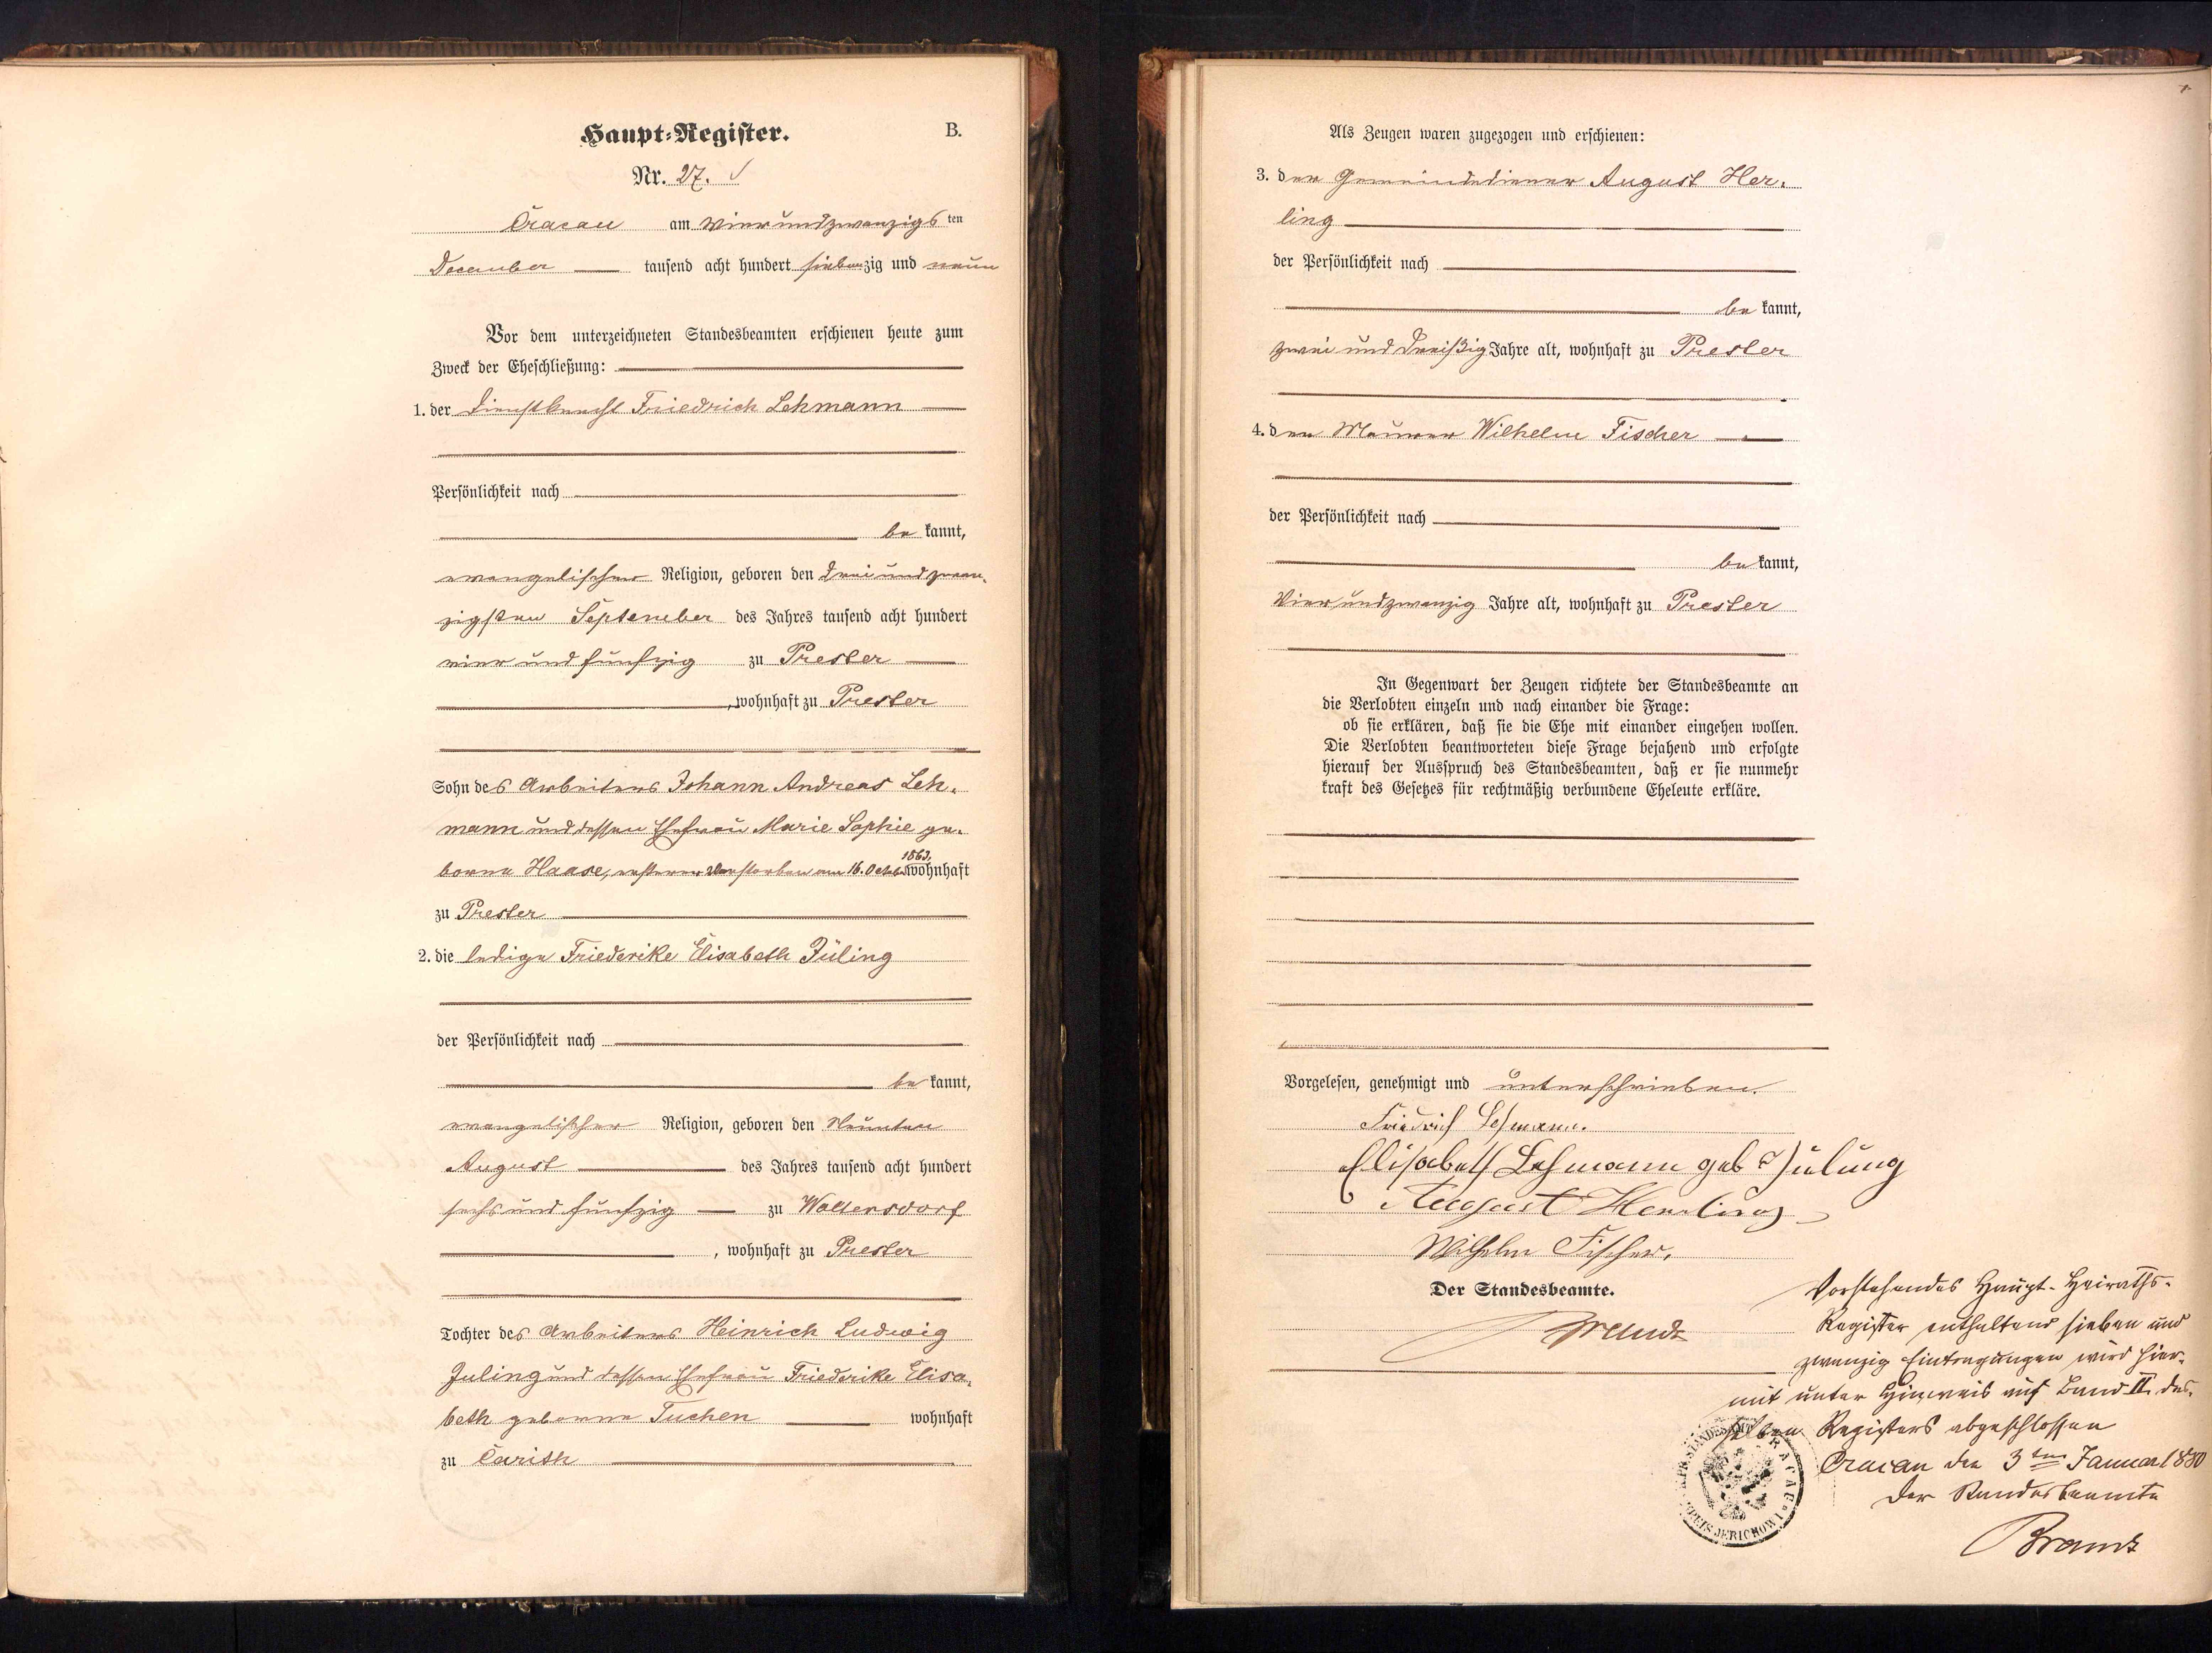 Haupt-Register.
B.
Nr. 27.
Cracau am vierundzwanzigsten
December tausend acht hundert siebenzig und neun
Vor dem unterzeichneten Standesbeamten erschienen heute zum
Zweck der Eheschließung:
1. der Dienstknecht Friedrich Lehmann
Persönlichkeit nach
bekannt,
evangelischer Religion, geboren den dreiundzwan-
zigsten September des Jahres tausend acht hundert
vier und fünfzig zu Prester
, wohnhaft zu Prester
Sohn des Arbeiters Johann Andreas Leh-
mann und dessen Ehefrau Marie Sophie ge-
1863.
borne Haase, ersterer verstorben am 16. Octob. wohnhaft
zu Prester
2. die ledige Friederike Elisabeth Jüling
der Persönlichkeit nach
bekannt,
evangelischer Religion, geboren den Neunten
August des Jahres tausend acht hundert
sechs und fünfzig zu Woltersdorf
, wohnhaft zu Prester
Tochter des Arbeiters Heinrich Ludwig
Juling und dessen Ehefrau Friederike Elisa-
beth geborne Tuchen wohnhaft
zu Carith
Als Zeugen waren zugezogen und erschienen:
3. der Gemeindediener August Her-
ling
der Persönlichkeit nach
bekannt,
zwei und dreißig Jahre alt, wohnhaft zu Prester
4. der Maurer Wilhelm Fischer
der Persönlichkeit nach
bekannt,
Vierundzwanzig Jahre alt, wohnhaft zu Prester
In Gegenwart der Zeugen richtete der Standesbeamte an
die Verlobten einzeln und nach einander die Frage:
ob sie erklären, daß sie die Ehe mit einander eingehen wollen.
Die Verlobten beantworteten diese Frage bejahend und erfolgte
hierauf der Ausspruch des Standesbeamten, daß er sie nunmehr
kraft des Gesetzes für rechtmäßig verbundene Eheleute erkläre.
Vorgelesen, genehmigt und unterschrieben.
Friedrich Lehmann.
Elisabeth Lehmann geb Jülung
August Herling
Wilhelm Fischer.
Der Standesbeamte.
Brandt
Vorstehendes Haupt-Heiraths-
Register enthaltend sieben und
zwanzig Eintragungen wird hier-
mit unter Hinweis auf Band II. des-
selben Registers abgeschlossen
Cracau den 3ten Januar 1880
Der Standesbeamte
Brandt
K. PR. STANDESAMT CRACAU
KREIS JERICHOW I